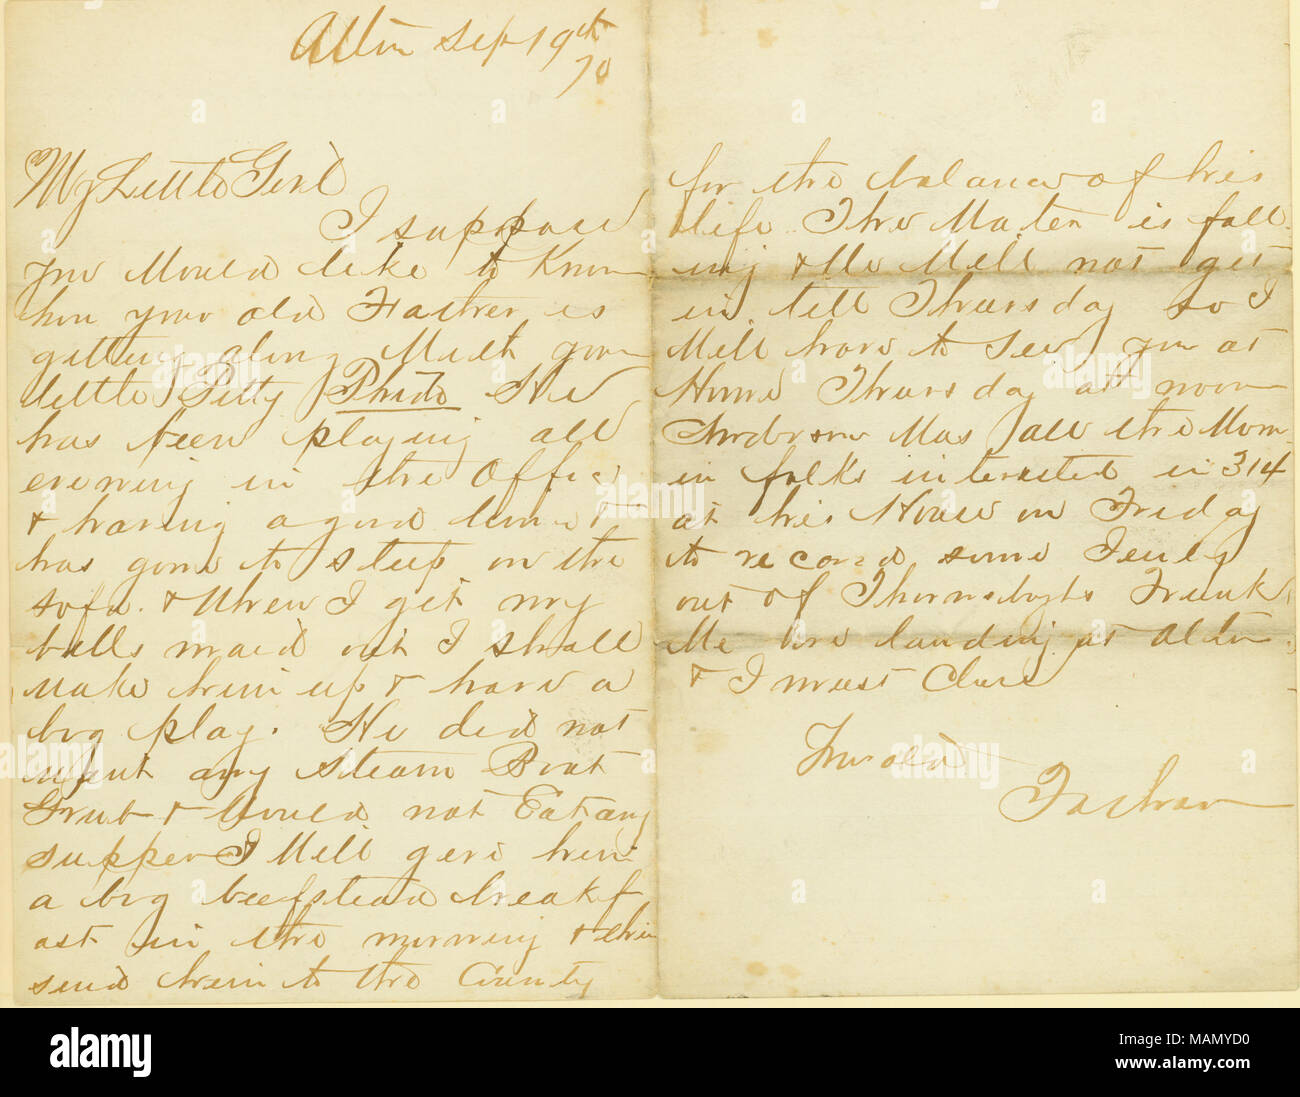 Alton Sept 19th
70
My Little Girl
I suppose
you Would like to Know
how your old Father is
getting along With your
little Petty Phido He
has been playing all
evening in the office
& having a good time &
has gone to sleep on the
sofa. & When I get my
bills maid out I shall
Wake him up & have a
big play. He did not
want any Steam Boat
Grub & Would not Eat any
supper I Will give him
a big beefstead breakf
ast in the morning & then
send him to the County
for the balance of his
life. The Water is fall
ing & We Will not get
in till Thursday so I
Will have to See you at
Home Thursday at noon
Was all the Wom
in folks interested in 314
at his House on Friday
to record some
out of Trunk
We are landing at Alton
& I must Close
Your old
Father
alamy
Image ID: MAMYD0
www.alamy.com